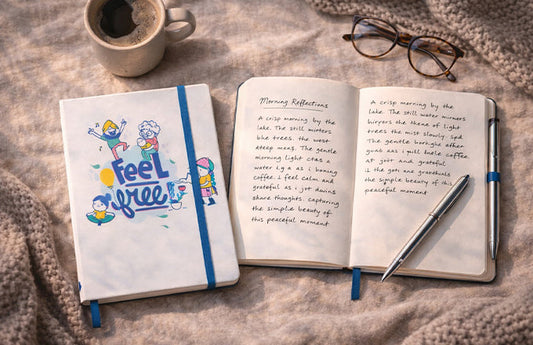 Feel
free
Morning Reflections
A crisp morning by the
lake. The still mirters
bhe trees. the west
ateep meas. The gentle
morning light ctas a
as i baming
coffee. i feel calm and
grateful as i jot
share thoughts. capturing
the simple beauty of
this peaceful moment
A crisp morning by the
lake. The still water
the theme of light
trees the mist slowly
The gentle
coffee
at goit and grateful
is the goti ane
the simple beauty of this
peaceful moment